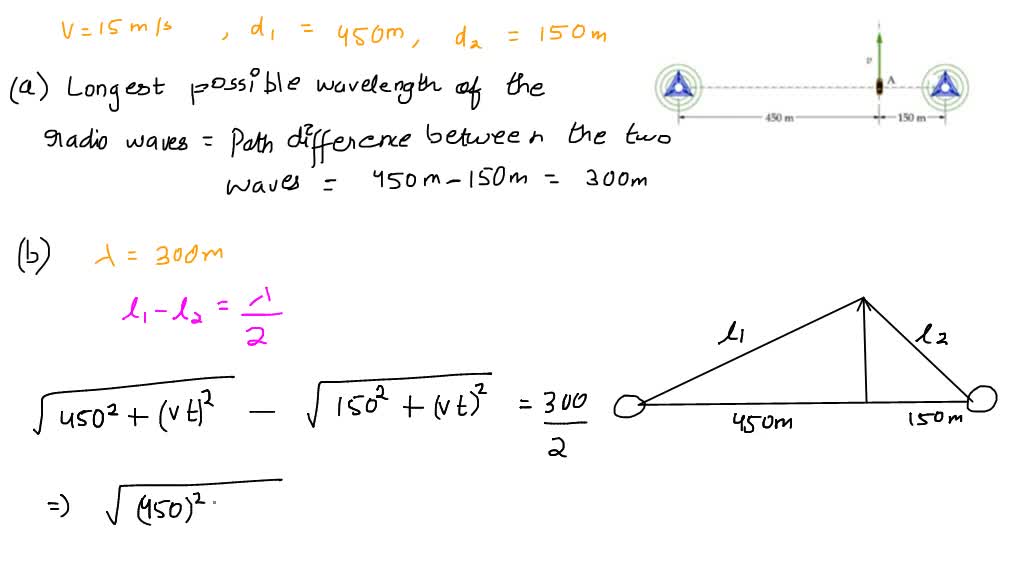 V = 15 m/s , d₁ = 450m, d₂ = 150m
(a) Longest possible wavelength of the
radio waves = Path difference between the two
waves = 450m - 150m = 300m
v
A
450 m
150 m
(b) λ = 300m
l₁ - l₂ = λ/2
√(450² + (vt)²) - √(150² + (vt)²) = 300/2
l₁
l₂
450m
150m
=) √(450)²